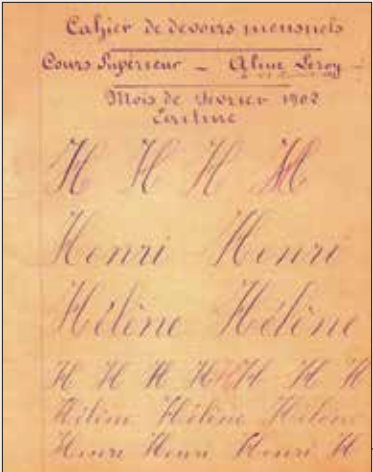 Cahier de devoirs mensuels
Cours Supérieur – Aline Leroy
Mois de Février 1902
Écriture
H H H H
Henri Henri
Hélène Hélène
H H H H H H H
Hélène Hélène Hélène
Henri Henri Henri H